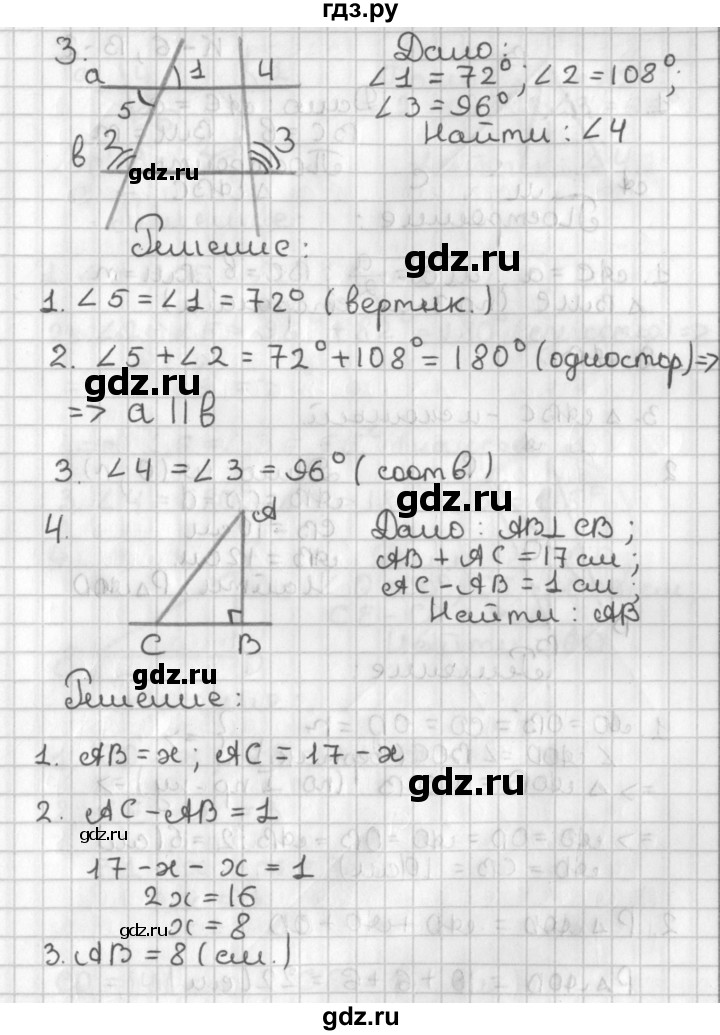 гдз.ру
3.
a
1
4
5
в
2
3
Дано:
∠1 = 72°; ∠2 = 108°;
∠3 = 96°
Найти: ∠4
gdz.ru
Решение:
gdz.ru
1. ∠5 = ∠1 = 72° (вертик.)
2. ∠5 + ∠2 = 72° + 108° = 180° (одностор) =>
gdz.ru
=> a || в
3. ∠4 = ∠3 = 96° (соотв)
gdz.ru
4.
A
C
B
Дано: AB⊥CB;
AB + AC = 17 см;
AC - AB = 1 см;
Найти: AB
gdz.ru
Решение:
1. AB = x; AC = 17 - x
gdz.ru
2. AC - AB = 1
gdz.ru
17 - x - x = 1
2x = 16
gdz.ru
x = 8
3. AB = 8 (см.)